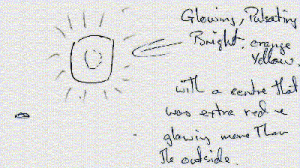 Glowing, Pulsating
Bright. orange
Yellow.
with a centre that
was extra red &
glowing more than
the outside.